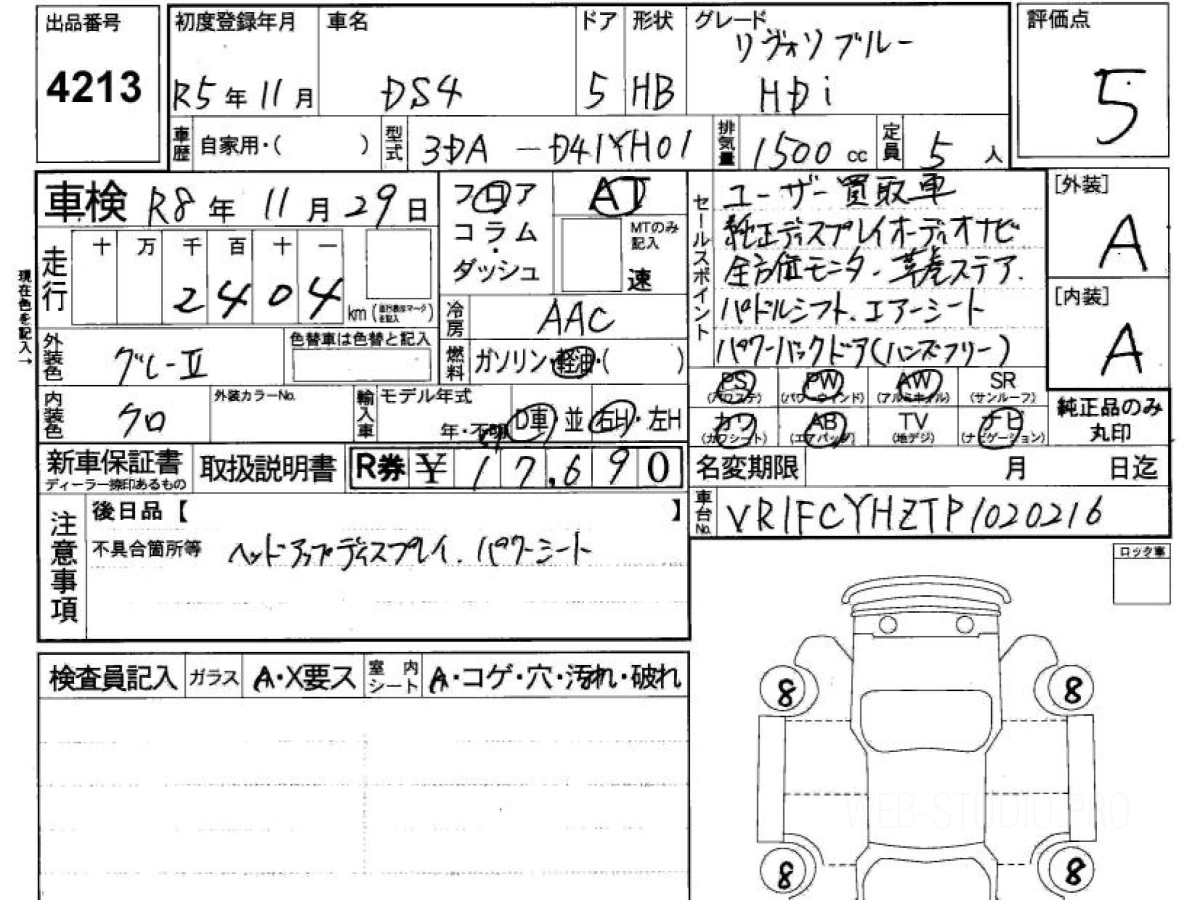 出品番号
4213
初度登録年月
R5年11月
車名
DS4
ドア
5
形状
HB
グレード
リヴォリブルー
HDi
評価点
5
車歴
自家用・( )
型式
3DA-D41YH01
排気量
1500cc
定員
5人
車検 R8年11月29日
フロア
コラム
・
ダッシュ
AT
MTのみ
記入
速
セールスポイント
ユーザー買取車
純正ディスプレイオーディオナビ
全方位モニター.革虎ステア.
パドルシフト.エアーシート
パワーバックドア(ハンズフリー)
[外装]
A
[内装]
A
現在色を記入→
走行
十 万 千 百 十 一
2 4 0 4 km
冷房
AAC
外装色
グレーII
色替車は色替と記入
燃料
ガソリン・軽油・( )
内装色
クロ
外装カラーNo.
輸入車
モデル年式
年・不明
D車・並
右H・左H
PS
(パワステ)
PW
(パワーウインド)
AW
(アルミホイル)
SR
(サンルーフ)
カワ
(カワシート)
AB
(エアバッグ)
TV
(地デジ)
ナビ
(ナビゲーション)
純正品のみ
丸印
新車保証書
ディーラー捺印あるもの
取扱説明書
R券 ¥17,690
名変期限 月 日迄
車台No.
VR1FCYHZTP1020216
注意事項
後日品【 】
不具合箇所等 ヘッドアップディスプレイ.パワーシート
ロック車
検査員記入
ガラス
A・X要ス
室内シート
A・コゲ・穴・汚れ・破れ
8
8
8
8
WEB-STUDIO.PRO